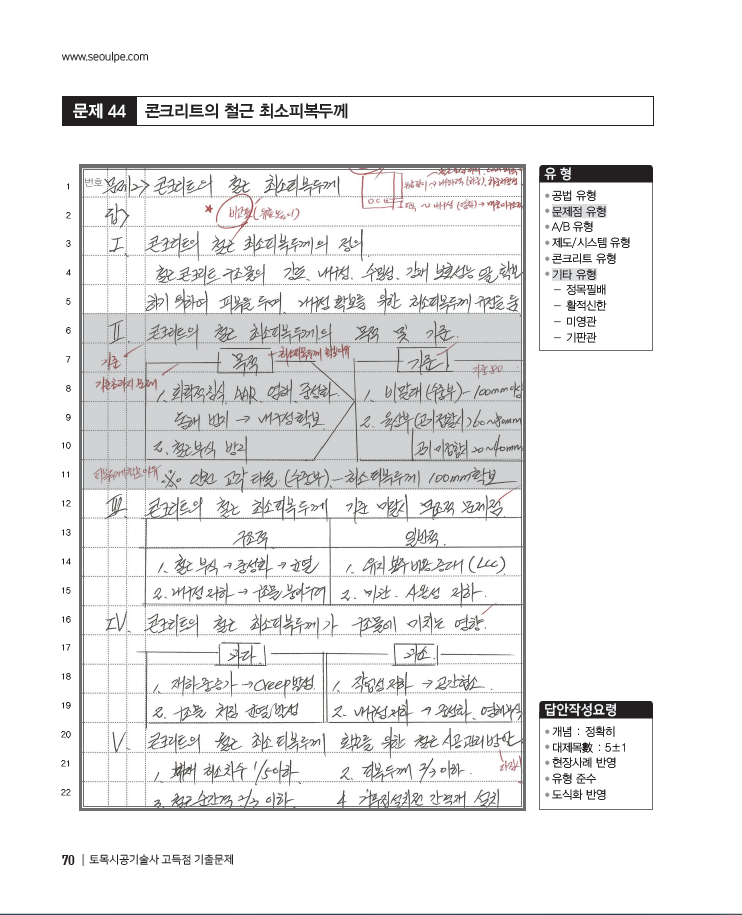 www.seoulpe.com
문제 44 콘크리트의 철근 최소피복두께
번호
1 문제2> 콘크리트의 철근 최소피복두께
2 답>
3 I. 콘크리트의 철근 최소피복두께의 정의
4 철근콘크리트 구조물의 강도, 내구성, 수밀성, 강재 보호성능 을 확보
5 하기 위하여 피복을 두며, 내구성 확보를 위한 최소피복두께 규정을 둠
6 II. 콘크리트의 철근 최소피복두께의 목적 및 기준
7 목적 기준
기준
8 1. 화학적침식, AAR, 염해, 중성화 1. 비말대 (수중부) - 100mm이상
9 동해 방지 → 내구성 확보 2. 육상부 (공기접할시) 60~80mm
10 2. 철근부식 방지 공기 미접할시 20~40mm
11 ※ 인천 교각 타설 (수중부) - 최소피복두께 100mm확보
12 III. 콘크리트의 철근 최소피복두께 기준 미달시 구조적 문제점
13 구조적 일반적
14 1. 철근 부식 → 중성화 → 균열 1. 유지보수비용 증대 (LCC)
15 2. 내구성 저하 → 구조물 2. 미관. 사용성 저하.
16 IV. 콘크리트의 철근 최소피복두께가 구조물에 미치는 영향.
17 과다 과소
18 1. 재하중증가 → Creep발생 1. 작업성저하 → 공간협소
19 2. 구조물 처짐 균열 발생 2. 내구성저하 → 중성화, 염해부식
20 V. 콘크리트의 철근 최소피복두께 확보를 위한 철근 시공관리방안
21 1. 부재 최소치수 1/5이하 2. 피복두께 2/3이하.
22 3. 철근순간격 2/3 이하. 4. 거푸집설치전 간격재 설치
유 형
• 공법 유형
• 문제점 유형
• A/B 유형
• 제도/시스템 유형
• 콘크리트 유형
• 기타 유형
– 정목필배
– 활적신한
– 미영관
– 기판관
답안작성요령
• 개념 : 정확히
• 대제목數 : 5±1
• 현장사례 반영
• 유형 준수
• 도식화 반영
70 | 토목시공기술사 고득점 기출문제